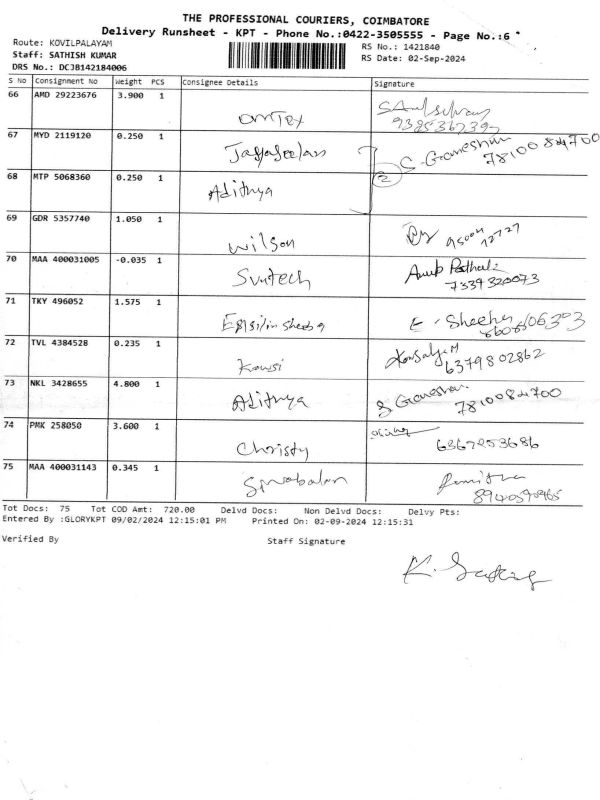 THE PROFESSIONAL COURIERS, COIMBATORE
Delivery Runsheet - KPT - Phone No.:0422-3505555 - Page No.:6
Route: KOVILPALAYAM
Staff: SATHISH KUMAR
DRS No.: DCJB142184006
RS No.: 1421840
RS Date: 02-Sep-2024
S No Consignment No Weight PCS Consignee Details Signature
66 AMD 29223676 3.900 1
9385367397
67 MYD 2119120 0.250 1 S. Ganeshan
7810084700
68 MTP 5068360 0.250 1 Adithya 2
69 GDR 5357740 1.050 1 Wilson
70 MAA 400031005 -0.035 1 Suntech
7339320073
71 TKY 496052 1.575 1 E. Sheeba
72 TVL 4384528 0.235 1 Kowsi
6379802862
73 NKL 3428655 4.800 1 Adithya S Ganeshan
7810084700
74 PMK 258050 3.600 1 Christy 6367253686
75 MAA 400031143 0.345 1 Sivabalan
Tot Docs: 75 Tot COD Amt: 720.00 Delvd Docs: Non Delvd Docs: Delvy Pts:
Entered By :GLORYKPT 09/02/2024 12:15:01 PM Printed On: 02-09-2024 12:15:31
Verified By Staff Signature